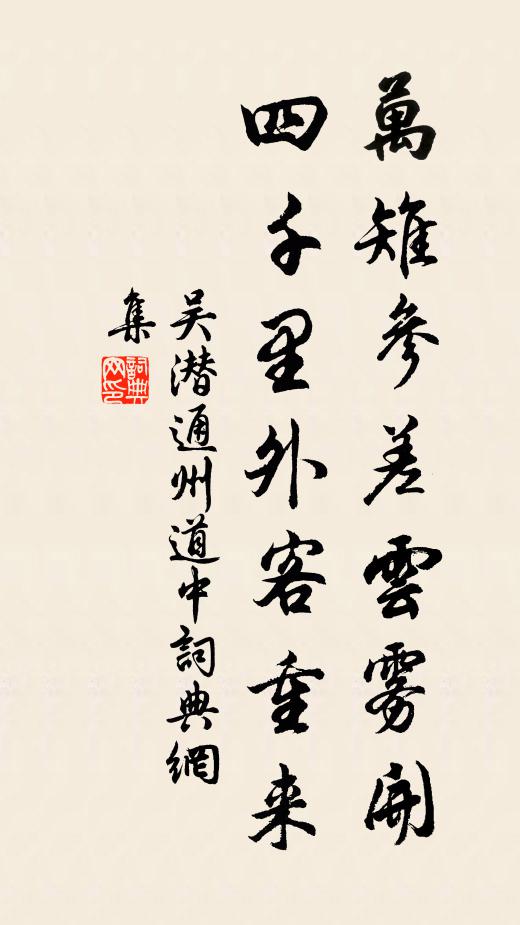 萬雉參差雲雾開
四千里外客重来
吴潜通州道中詞典網
集
詞典
网印